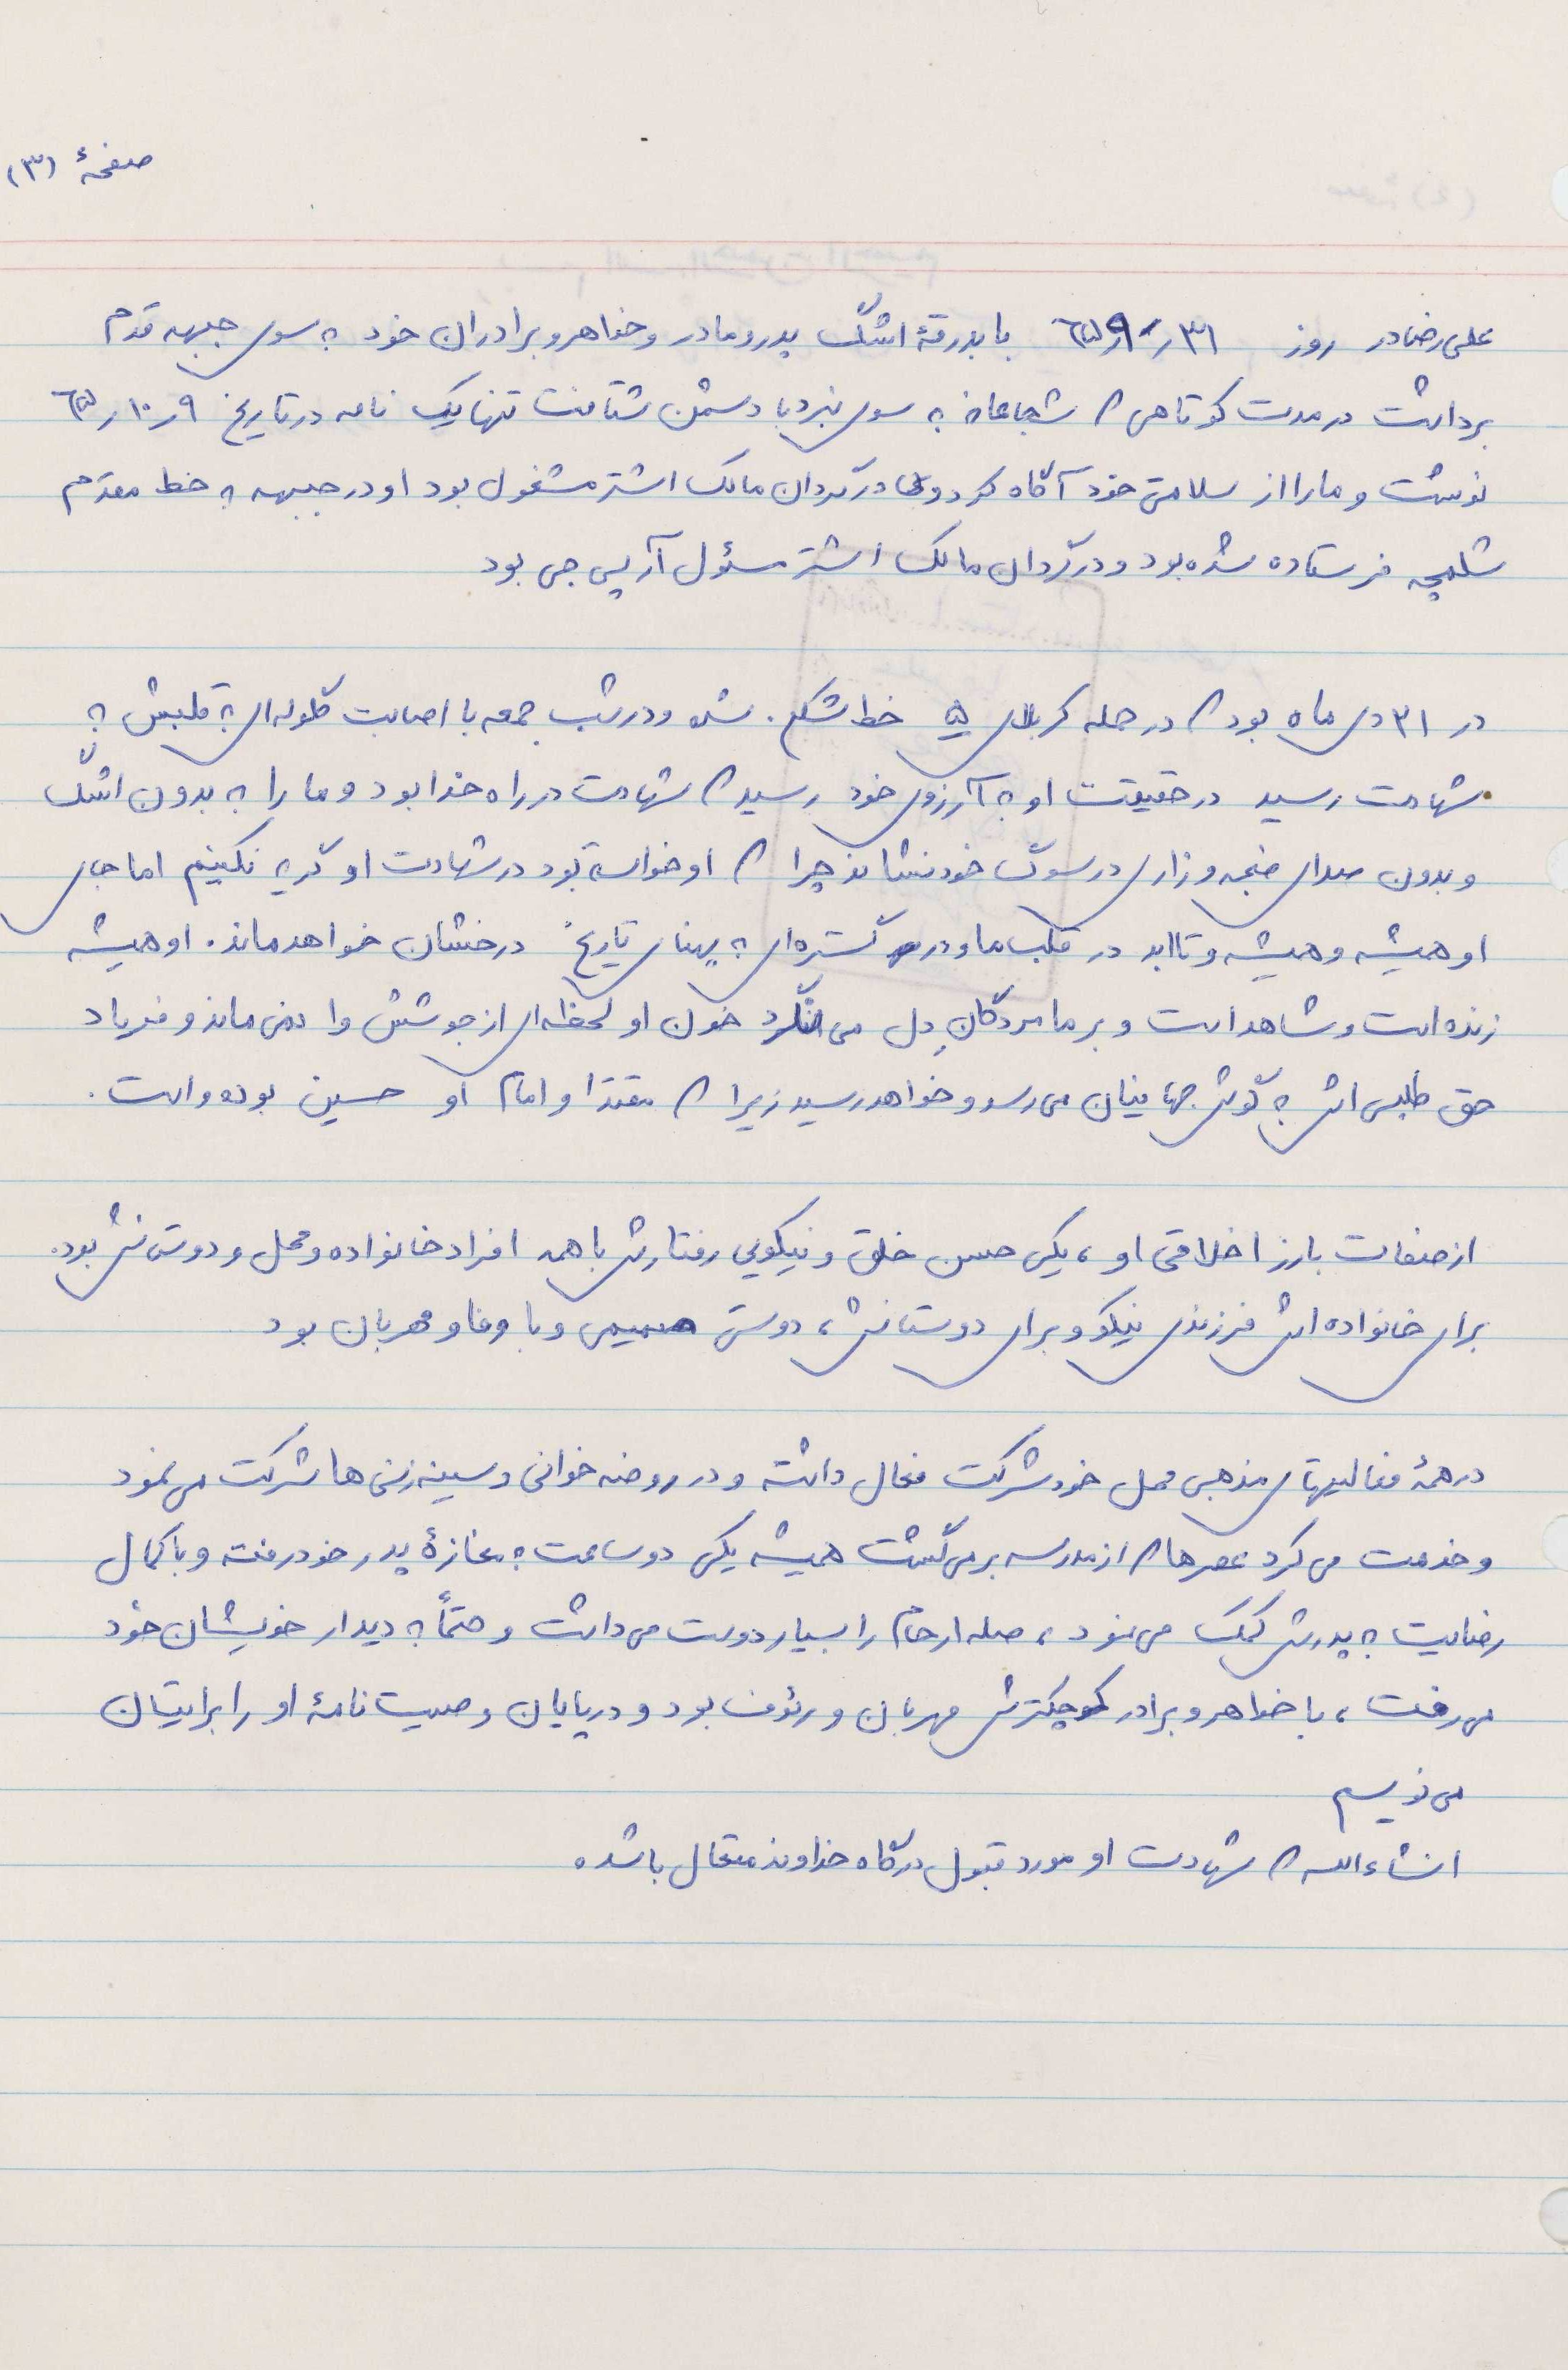 صفحهٔ (۳)
علی رضا در روز ۳۱ر۹ر۶۵ با بدرقهٔ اشگ پدر و مادر و خواهر و برادران خود به سوی جبهه قدم
برداشت در مدت کوتاهی که شجاعانه به سوی نبرد با دشمن شتافت تنها یک نامه در تاریخ ۹ر۱۰ر۶۵
نوشت و ما را از سلامتی خود آگاه کرد وی در گردان مالک اشتر مشغول بود او در جبهه به خط مقدم
شلمچه فرستاده شده بود و در گردان مالک اشتر مسئول آر پی جی بود
در ۳۱ دی ماه بود که در حمله کربلای ۵ خط شکن شده و در شب جمعه با اصابت گلوله ای به قلبش به
شهادت رسید در حقیقت او به آرزوی خود رسید که شهادت در راه خدا بود و ما را به بدون اشگ
و بدون صدای ضجه و زاری در سوگ خود نشاند چرا که او خواسته بود در شهادت او گریه نکنیم اما جای
او همیشه و همیشه و تا ابد در قلب ما و در گستره ای به پهنای تاریخ درخشان خواهد ماند. او همیشه
زنده است و شاهد است و بر ما مردگانِ دل می نگرد خون او لحظه ای از جوشش وا نمی ماند و فریاد
حق طلبی اش به گوش جهانیان می رسد و خواهد رسید زیرا که مقتدا و امام او حسین بوده و است.
از صفات بارز اخلاقی او، یکی حسن خلق و نیکویی رفتارش با همه افراد خانواده و محل و دوستانش بود.
برای خانواده اش فرزندی نیکو و برای دوستانش، دوستی صمیمی و با وفا و مهربان بود
در همهٔ فعالیتهای مذهبی محل خود شرکت فعال داشته و در روضه خوانی و سینه زنی ها شرکت می نمود
و خدمت می کرد عصرها که از مدرسه بر می گشت همیشه یکی دو ساعت به مغازهٔ پدر خود رفته و با کمال
رضایت به پدرش کمک می نمود، صله ارحام را بسیار دوست می داشت و حتماً به دیدار خویشان خود
می رفت، با خواهر و برادر کوچکترش مهربان و رئوف بود و در پایان وصیت نامهٔ او را برایتان
می نویسم
انشاءالله که شهادت او مورد قبول درگاه خداوند متعال باشد.